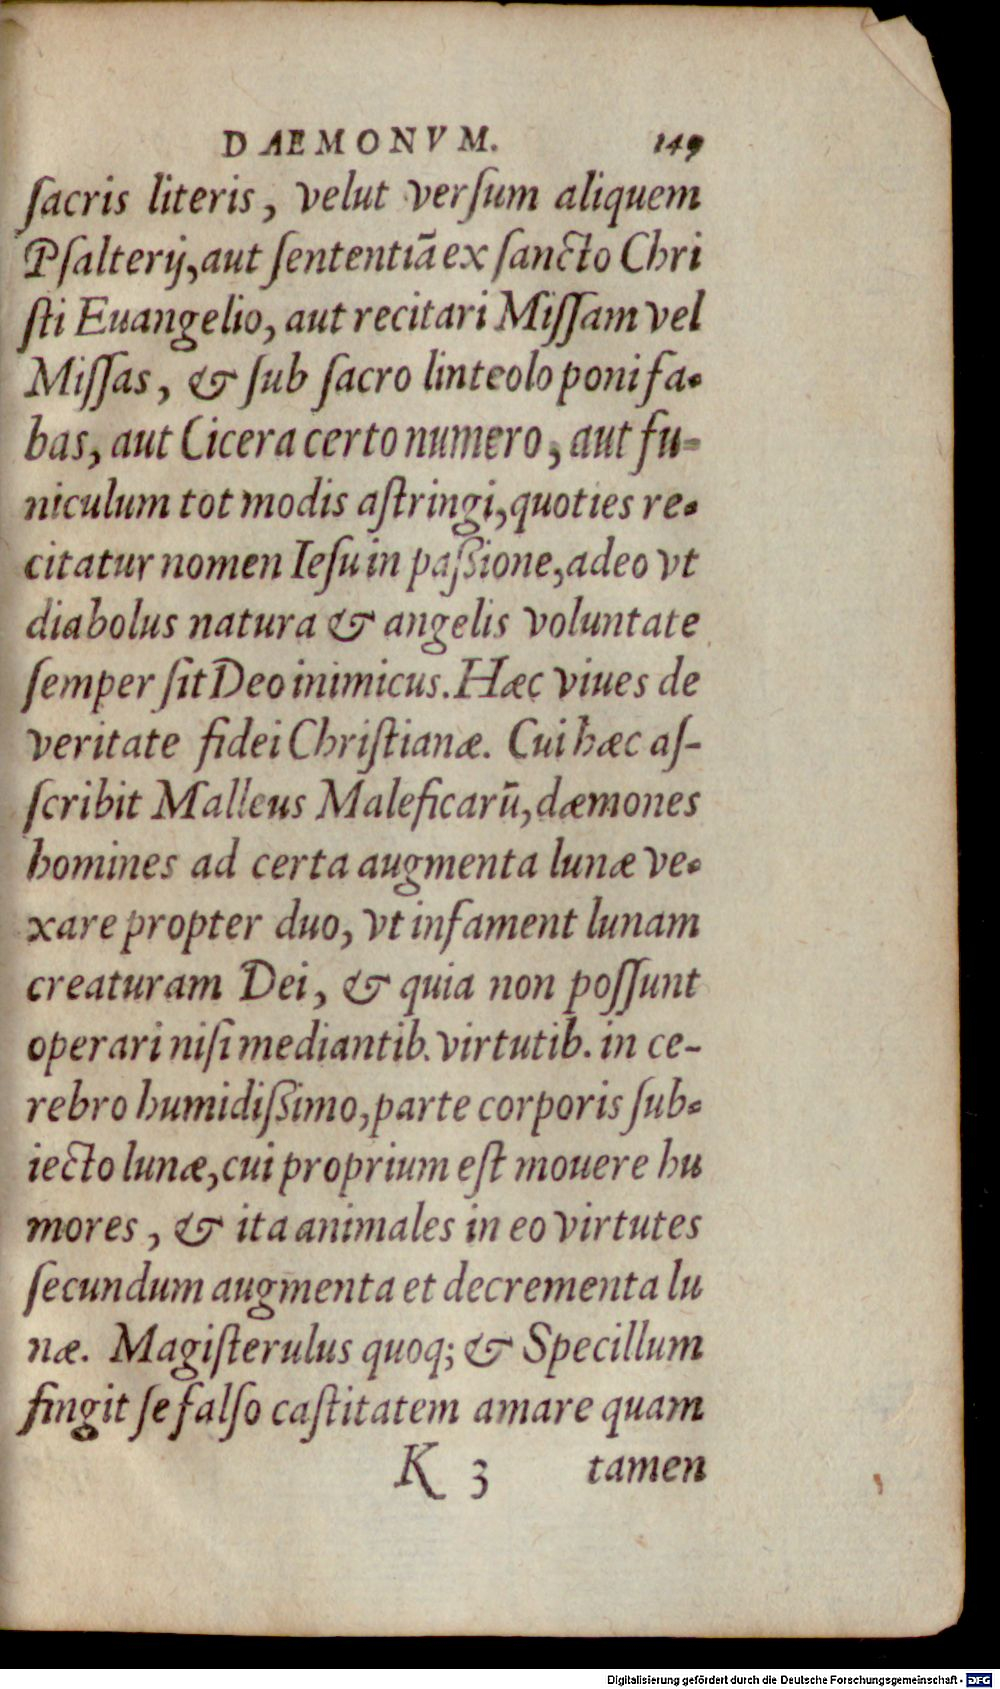 DAEMONVM. 149
sacris literis, velut versum aliquem
Psalterij, aut sententiã ex sancto Chri
sti Euangelio, aut recitari Missam vel
Missas, & sub sacro linteolo poni fa-
bas, aut Cicera certo numero, aut fu-
niculum tot modis astringi, quoties re-
citatur nomen Iesu in passione, adeo vt
diabolus natura & angelis voluntate
semper sit Deo inimicus. Hæc viues de
veritate fidei Christianæ. Cui hæc as-
scribit Malleus Maleficarũ, dæmones
homines ad certa augmenta lunæ ve-
xare propter duo, vt infament lunam
creaturam Dei, & quia non possunt
operari nisi mediantib. virtutib. in ce-
rebro humidissimo, parte corporis sub-
iecto lunæ, cui proprium est mouere hu
mores, & ita animales in eo virtutes
secundum augmenta et decrementa lu
næ. Magisterulus quoq; & Specillum
fingit se falso castitatem amare quam
K 3 tamen
Digitalisierung gefördert durch die Deutsche Forschungsgemeinschaft - DFG